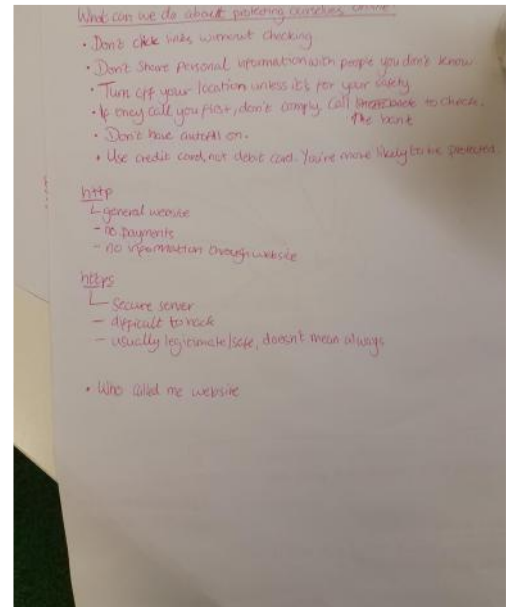 What can we do about protecting ourselves online?
• Don't click links without checking
• Don't share personal information with people you don't know
• Turn off your location unless it's for your safety
• If they call you first, don't comply. Call back to check.
the bank
• Don't have autofill on.
• Use credit card, not debit card. You're more likely to be protected.
http
- general website
- no payments
- no information through website
https
- Secure server
- difficult to hack
- usually legitimate/safe, doesn't mean always
• Who called me website